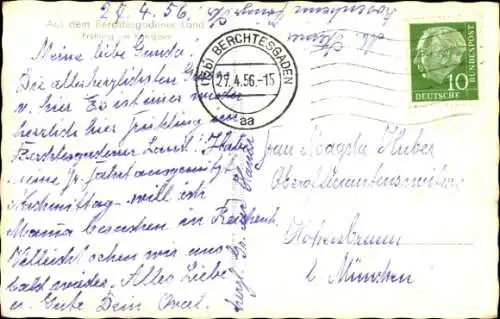 27.4.56.
Aus dem Berchtesgadener Land
Frühling am Königssee
Meine liebe Gunda!
Die allerherzlichsten
v. hier. Es ist immer wieder
herrlich hier Frühling im
Berchtesgadener Land. Habe
meine Fahrt ausgenützt
Nachmittag will ich
Mama besuchen in Reichenh.
Vielleicht sehen wir uns
bald wieder. Alles Liebe
u. Gute Dein Onkel.
(13b) BERCHTESGADEN
27.4.56.-15
aa
10
DEUTSCHE BUNDESPOST
Frau Magda Huber
Höhenbrunn
b. München